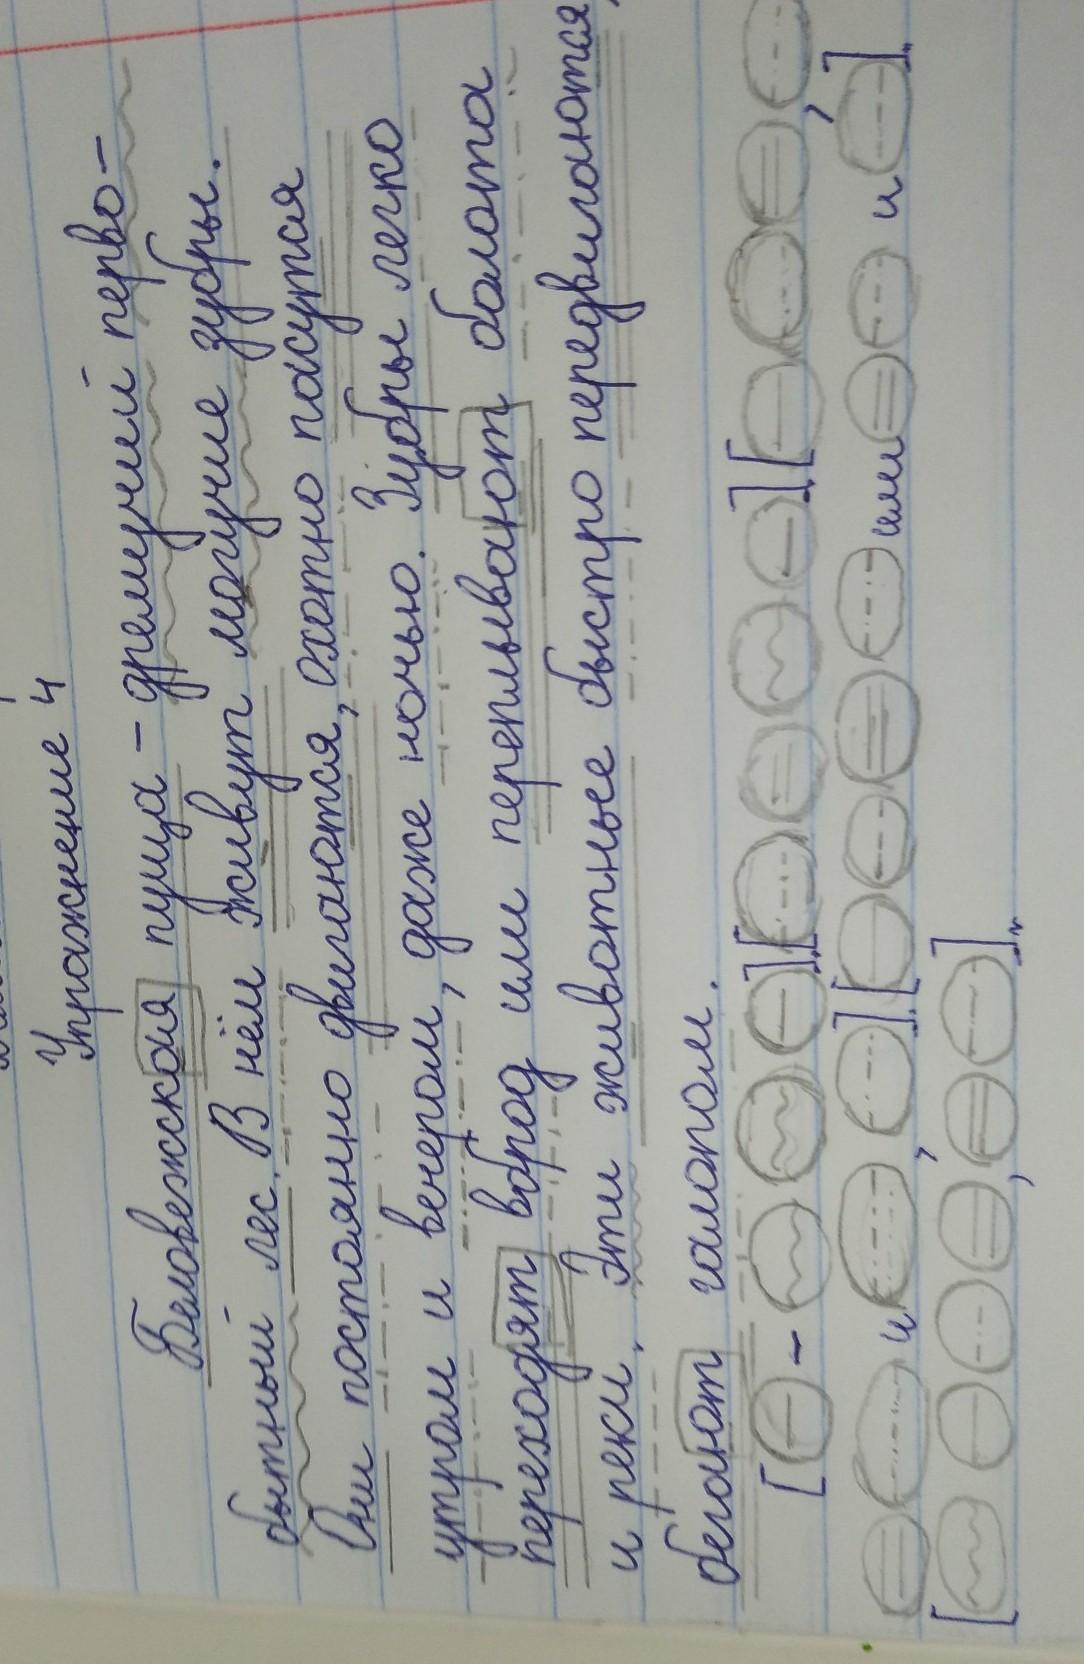 Упражнение 4
Беловежская пуща – дремучий перво-
бытный лес. В нём живут могучие зубры.
Они постоянно двигаются, охотно пасутся
утром и вечером, даже ночью. Зубры легко
переходят вброд или переплывают болота
и реки. Эти животные быстро передвигаются,
бегают галопом.
[ – ].[ ].[ ,
и , ].[ или и ].
[ , ].